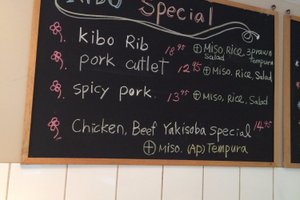 KIBO Special
kibo Rib 18.95 ⊕ Miso, Rice, 3 prawn
Salad Tempura
pork cutlet 12.95 ⊕ Miso, Rice, Salad
spicy pork. 13.95 ⊕ Miso, Rice, Salad
Chicken, Beef Yakisoba Special 14.95
⊕ Miso. (AP) Tempura